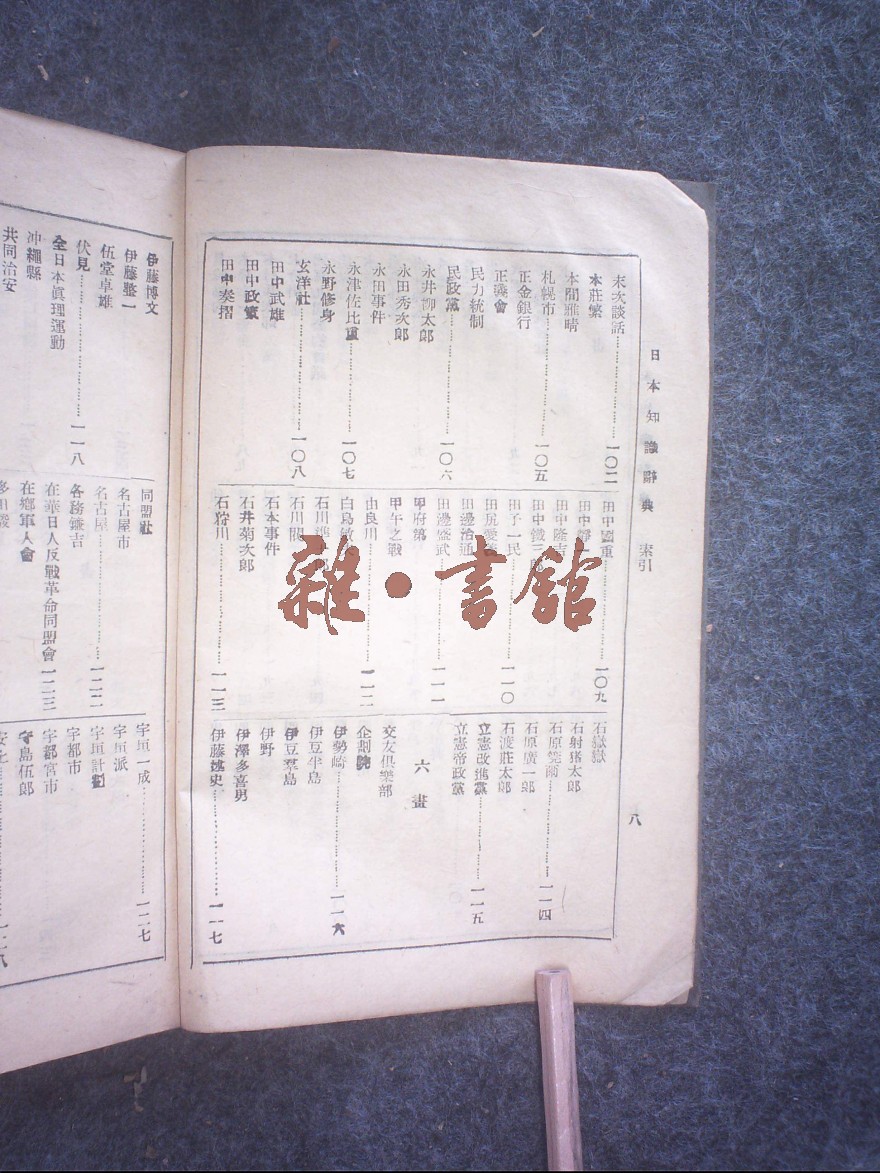 日本知識辭典 索引
八
末次談話……一〇二
本莊繁
本間雅晴
札幌市……一〇五
正金銀行
正義會
民力統制
民政黨……一〇六
永井柳太郎
永田秀次郎
永田事件
永津佐比重……一〇七
永野修身
玄洋社……一〇八
田中武雄
田中政策
田中奏摺
田中國重……一〇九
田中靜一
田中隆吉
田中鐵三郎
田子一民……一一〇
田尻愛義
田邊治通
田邊盛武……一一一
甲府第
甲午之戰
由良川……一一二
白鳥敏夫
石川準十郎
石川閥
石本事件
石井菊次郎
石狩川……一一三
石嶽嶽
石射猪太郎
石原莞爾……一一四
石原廣一郎
石渡莊太郎
立憲改進黨……一一五
立憲帝政黨
六畫
交友倶樂部
企劃院
伊勢崎……一一六
伊豆半島
伊豆羣島
伊野
伊澤多喜男
伊藤述史……一一七
伊藤博文
伊藤整一
伍堂卓雄
伏見……一一八
全日本眞理運動
沖繩縣
共同治安
同盟社
名古屋市
名古屋……一二二
各務鎌吉
在華日人反戰革命同盟會 一二三
在鄉軍人會
多田駿
宇垣一成……一二七
宇垣派
宇垣計劃
宇都市
宇都宮市
字島伍郎
雜·書館